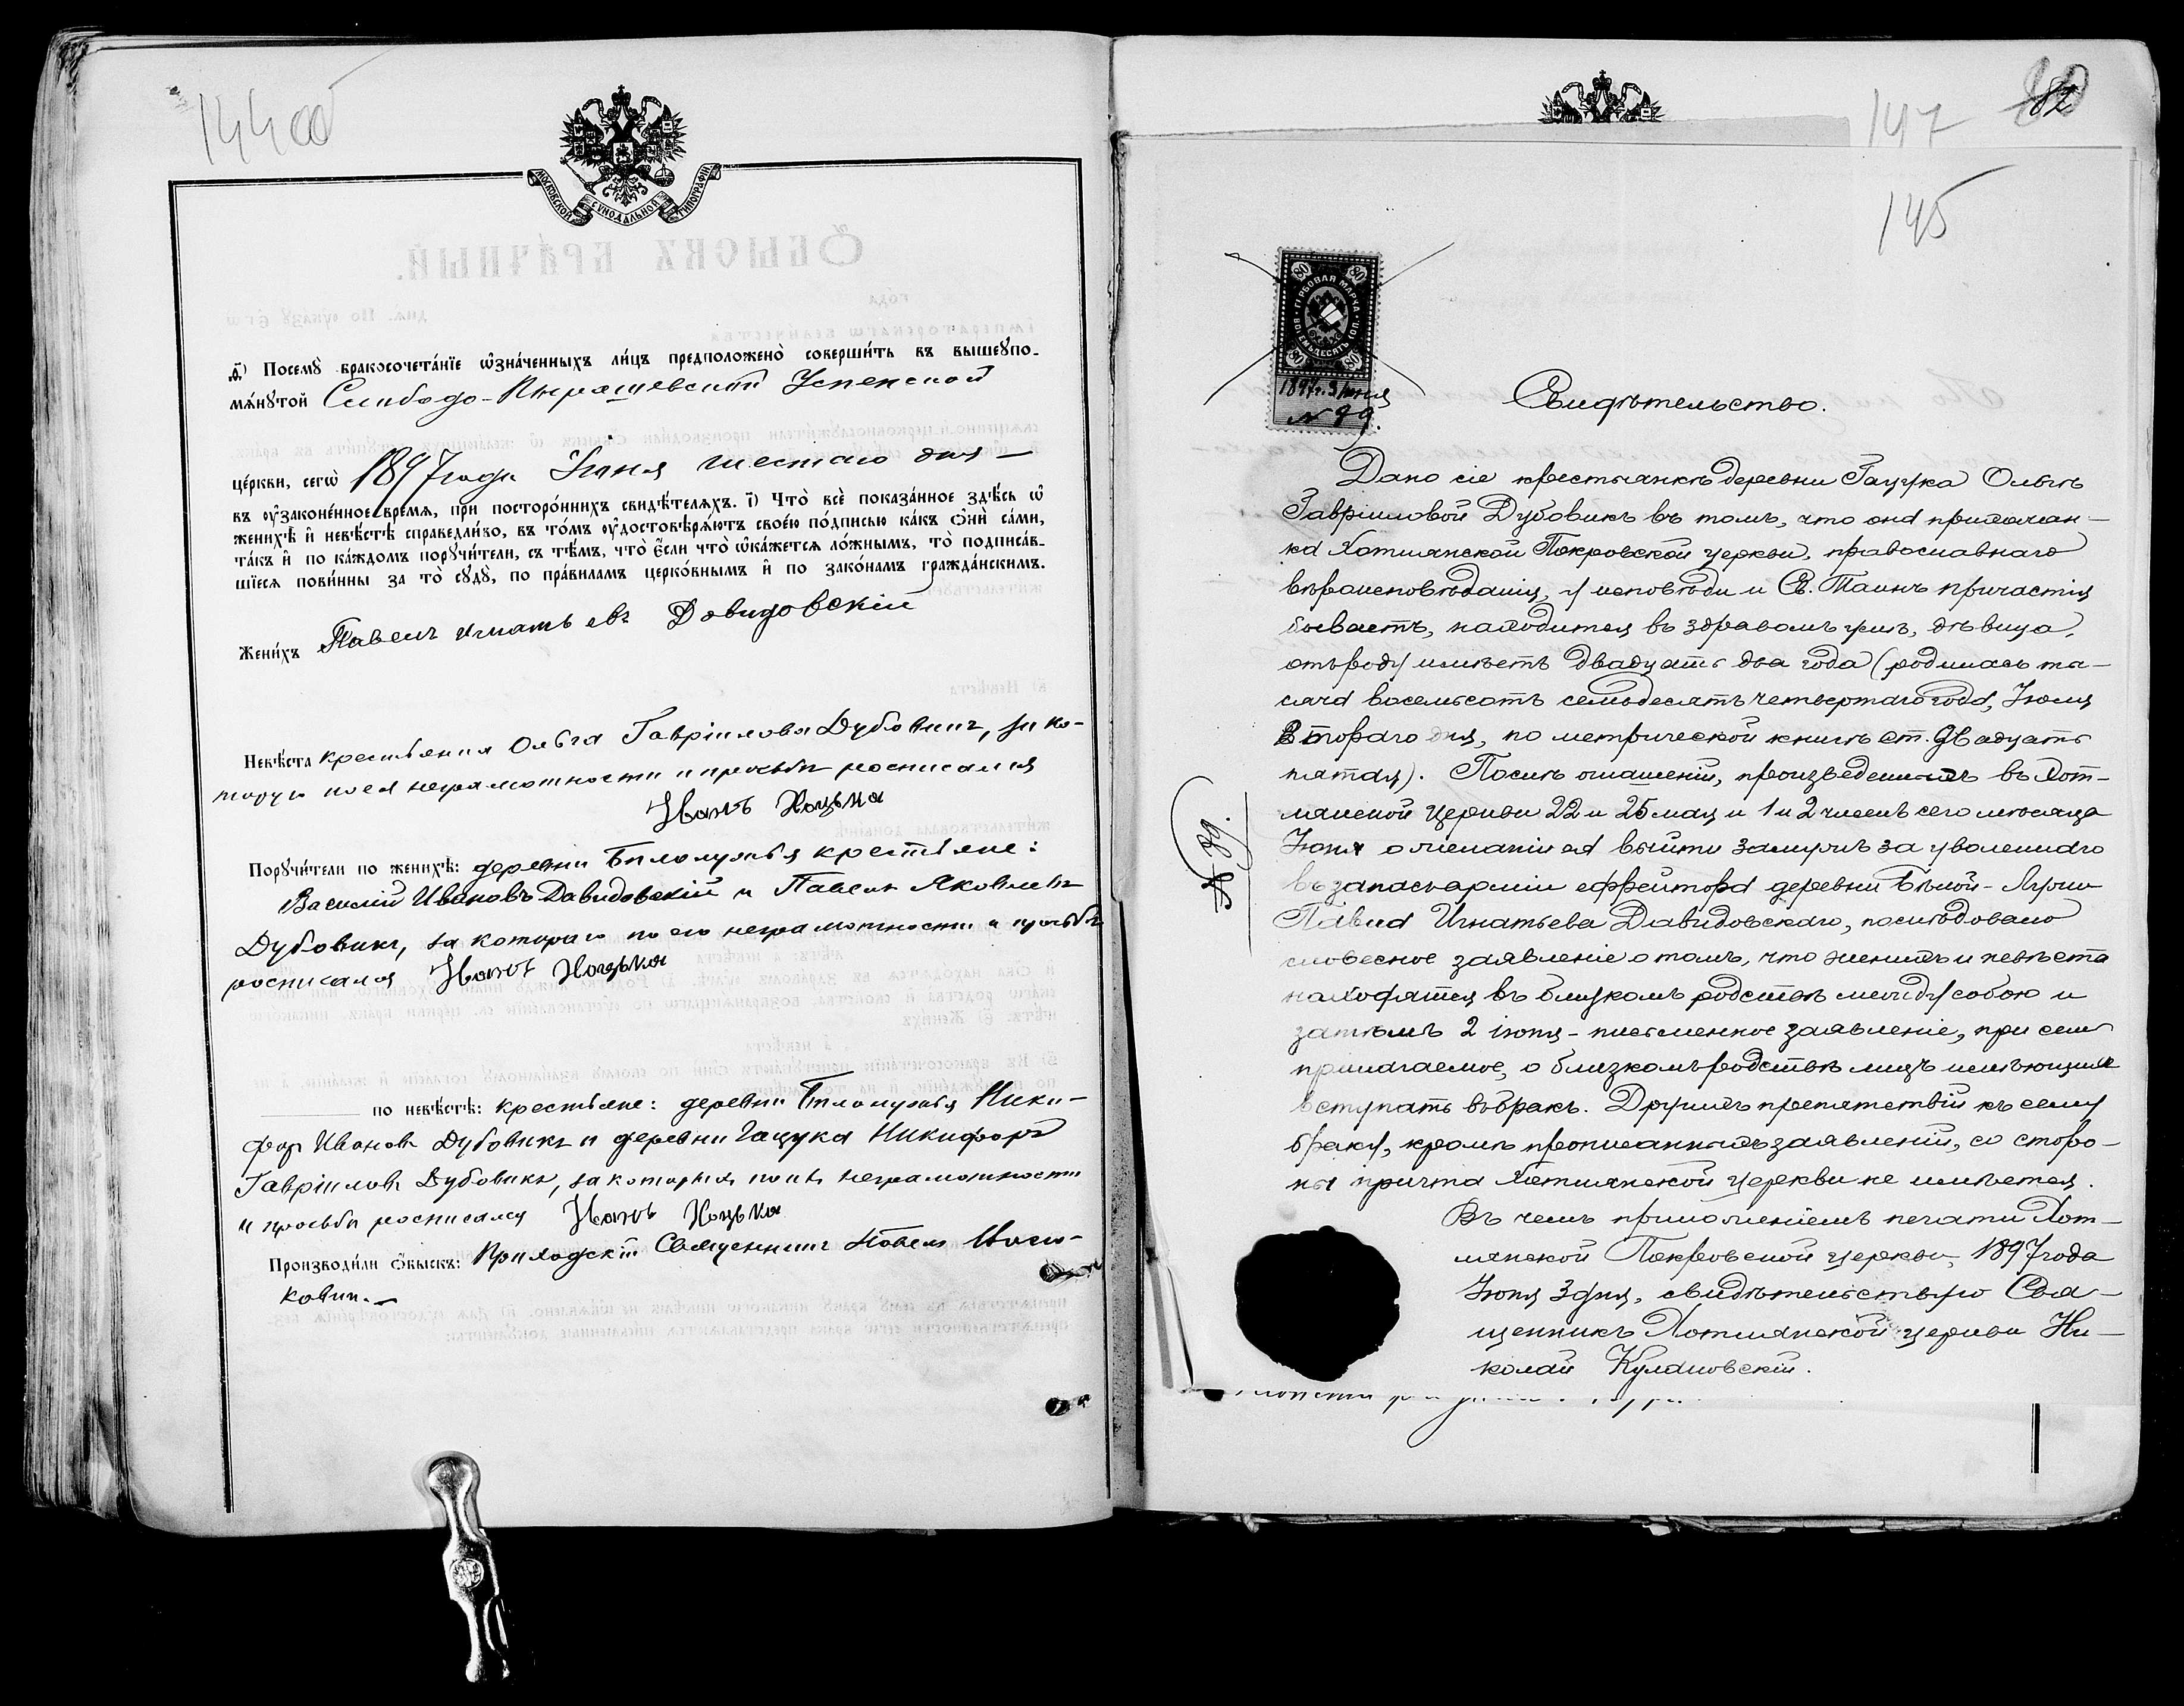 144об
МОСКОВСКОЙ СѴНОДАЛЬНОЙ ТИПОГРАФІИ
ѳ҃) Посемꙋ̀ бракосочета́нїе ѡ҆зна́ченныхъ ли́цъ предположено̀ соверши́ть въ вышеꙋпо-
мѧ́нꙋтой Слободо-Кырашевской Успенской
це́ркви, сегѡ̀ 1897 года Іюня шестаго дня —
въ ᲂу҆законе́нное вре́мѧ, при посторо́ннихъ свидѣ́телѧхъ. і҃) Что̀ всѐ показа́нное здѣ́сь ѡ҆
женихѣ̀ и҆ невѣ́стѣ справедли́во, въ то́мъ ᲂу҆достовѣрѧ́ютъ свое́ю по́дписью ка́къ ѻ҆нѝ са́ми,
та́къ и҆ по ка́ждомъ порꙋчи́тели, съ тѣ́мъ, что̀ є҆́сли что̀ ѡ҆ка́жетсѧ ло́жнымъ, то̀ подписа́в-
шїесѧ пови́нны за то̀ сꙋдꙋ̀, по пра́виламъ церко́внымъ и҆ по зако́намъ гражда́нскимъ.
Жени́хъ Павелъ Игнатьевъ Довидовскій
Невѣ́ста крестьянка Ольга Гавріилова Дубовикъ, за ко-
торую по ея неграмотности и просьбѣ росписался
Иванъ Коцька
Порꙋчи́тели по женихѣ̀: деревни Бѣлолужья крестьяне:
Василій Ивановъ Давидовскій и Павелъ Яковлевъ
Дубовикъ, за котораго по его неграмотности и просьбѣ
росписался Иванъ Коцька
по невѣ́стѣ: крестьяне: деревни Бѣлолужья Ники-
форъ Ивановъ Дубовикъ и деревни Гацука Никифоръ
Гавріиловъ Дубовикъ, за которыхъ по ихъ неграмотности
и просьбѣ росписался Иванъ Коцька
Производи́ли ѻ҆́быскъ: Приходскій Священникъ Павелъ
147
145
ГЕРБОВАЯ МАРКА
ВОСЕМЬДЕСЯТЪ КОП.
80 80
80 80
1897 г. 3 Іюня
№ 99.
Свидѣтельство.
Дано сіе крестьянкѣ деревни Гацука Ольгѣ
Гавріиловой Дубовикъ въ томъ, что она прихожан-
ка Хотлянской Покровской церкви, православнаго
вѣроисповѣданія, у исповѣди и Св. Таинъ причастія
бываетъ, находится въ здравомъ умѣ, дѣвица,
отъ роду имѣетъ двадцать два года (родилась ты-
сяча восемьсотъ семьдесятъ четвертаго года, Іюля
второго дня, по метрической книгѣ ст. двадцать
пятая). Послѣ оглашеній, произведенныхъ въ Хот-
лянской церкви 22 и 25 мая и 1 и 2 числъ сего мѣсяца
Іюня о желаніи ея выйти замужъ за уволеннаго
въ запасъ арміи ефрейтора деревни Бѣлой-Лужи
Павла Игнатьева Давидовскаго, послѣдовало
словесное заявленіе о томъ, что женихъ и невѣста
находятся въ близкомъ родствѣ между собою и
затѣмъ 2 іюня - письменное заявленіе, при семъ
прилагаемое, о близкомъ родствѣ лицъ имѣющихъ
вступать въ бракъ. Другихъ препятствій къ сему
браку, кромѣ прописанныхъ заявленій, со сторо-
ны причта Хотлянской церкви не имѣется.
Въ чемъ приложеніемъ печати Хот-
лянской Покровской церкви, 1897 года
Іюня 3 дня, свидѣтельствую Свя-
щенникъ Хотлянской церкви Ни-
колай Кулаковскій.
№ 39.